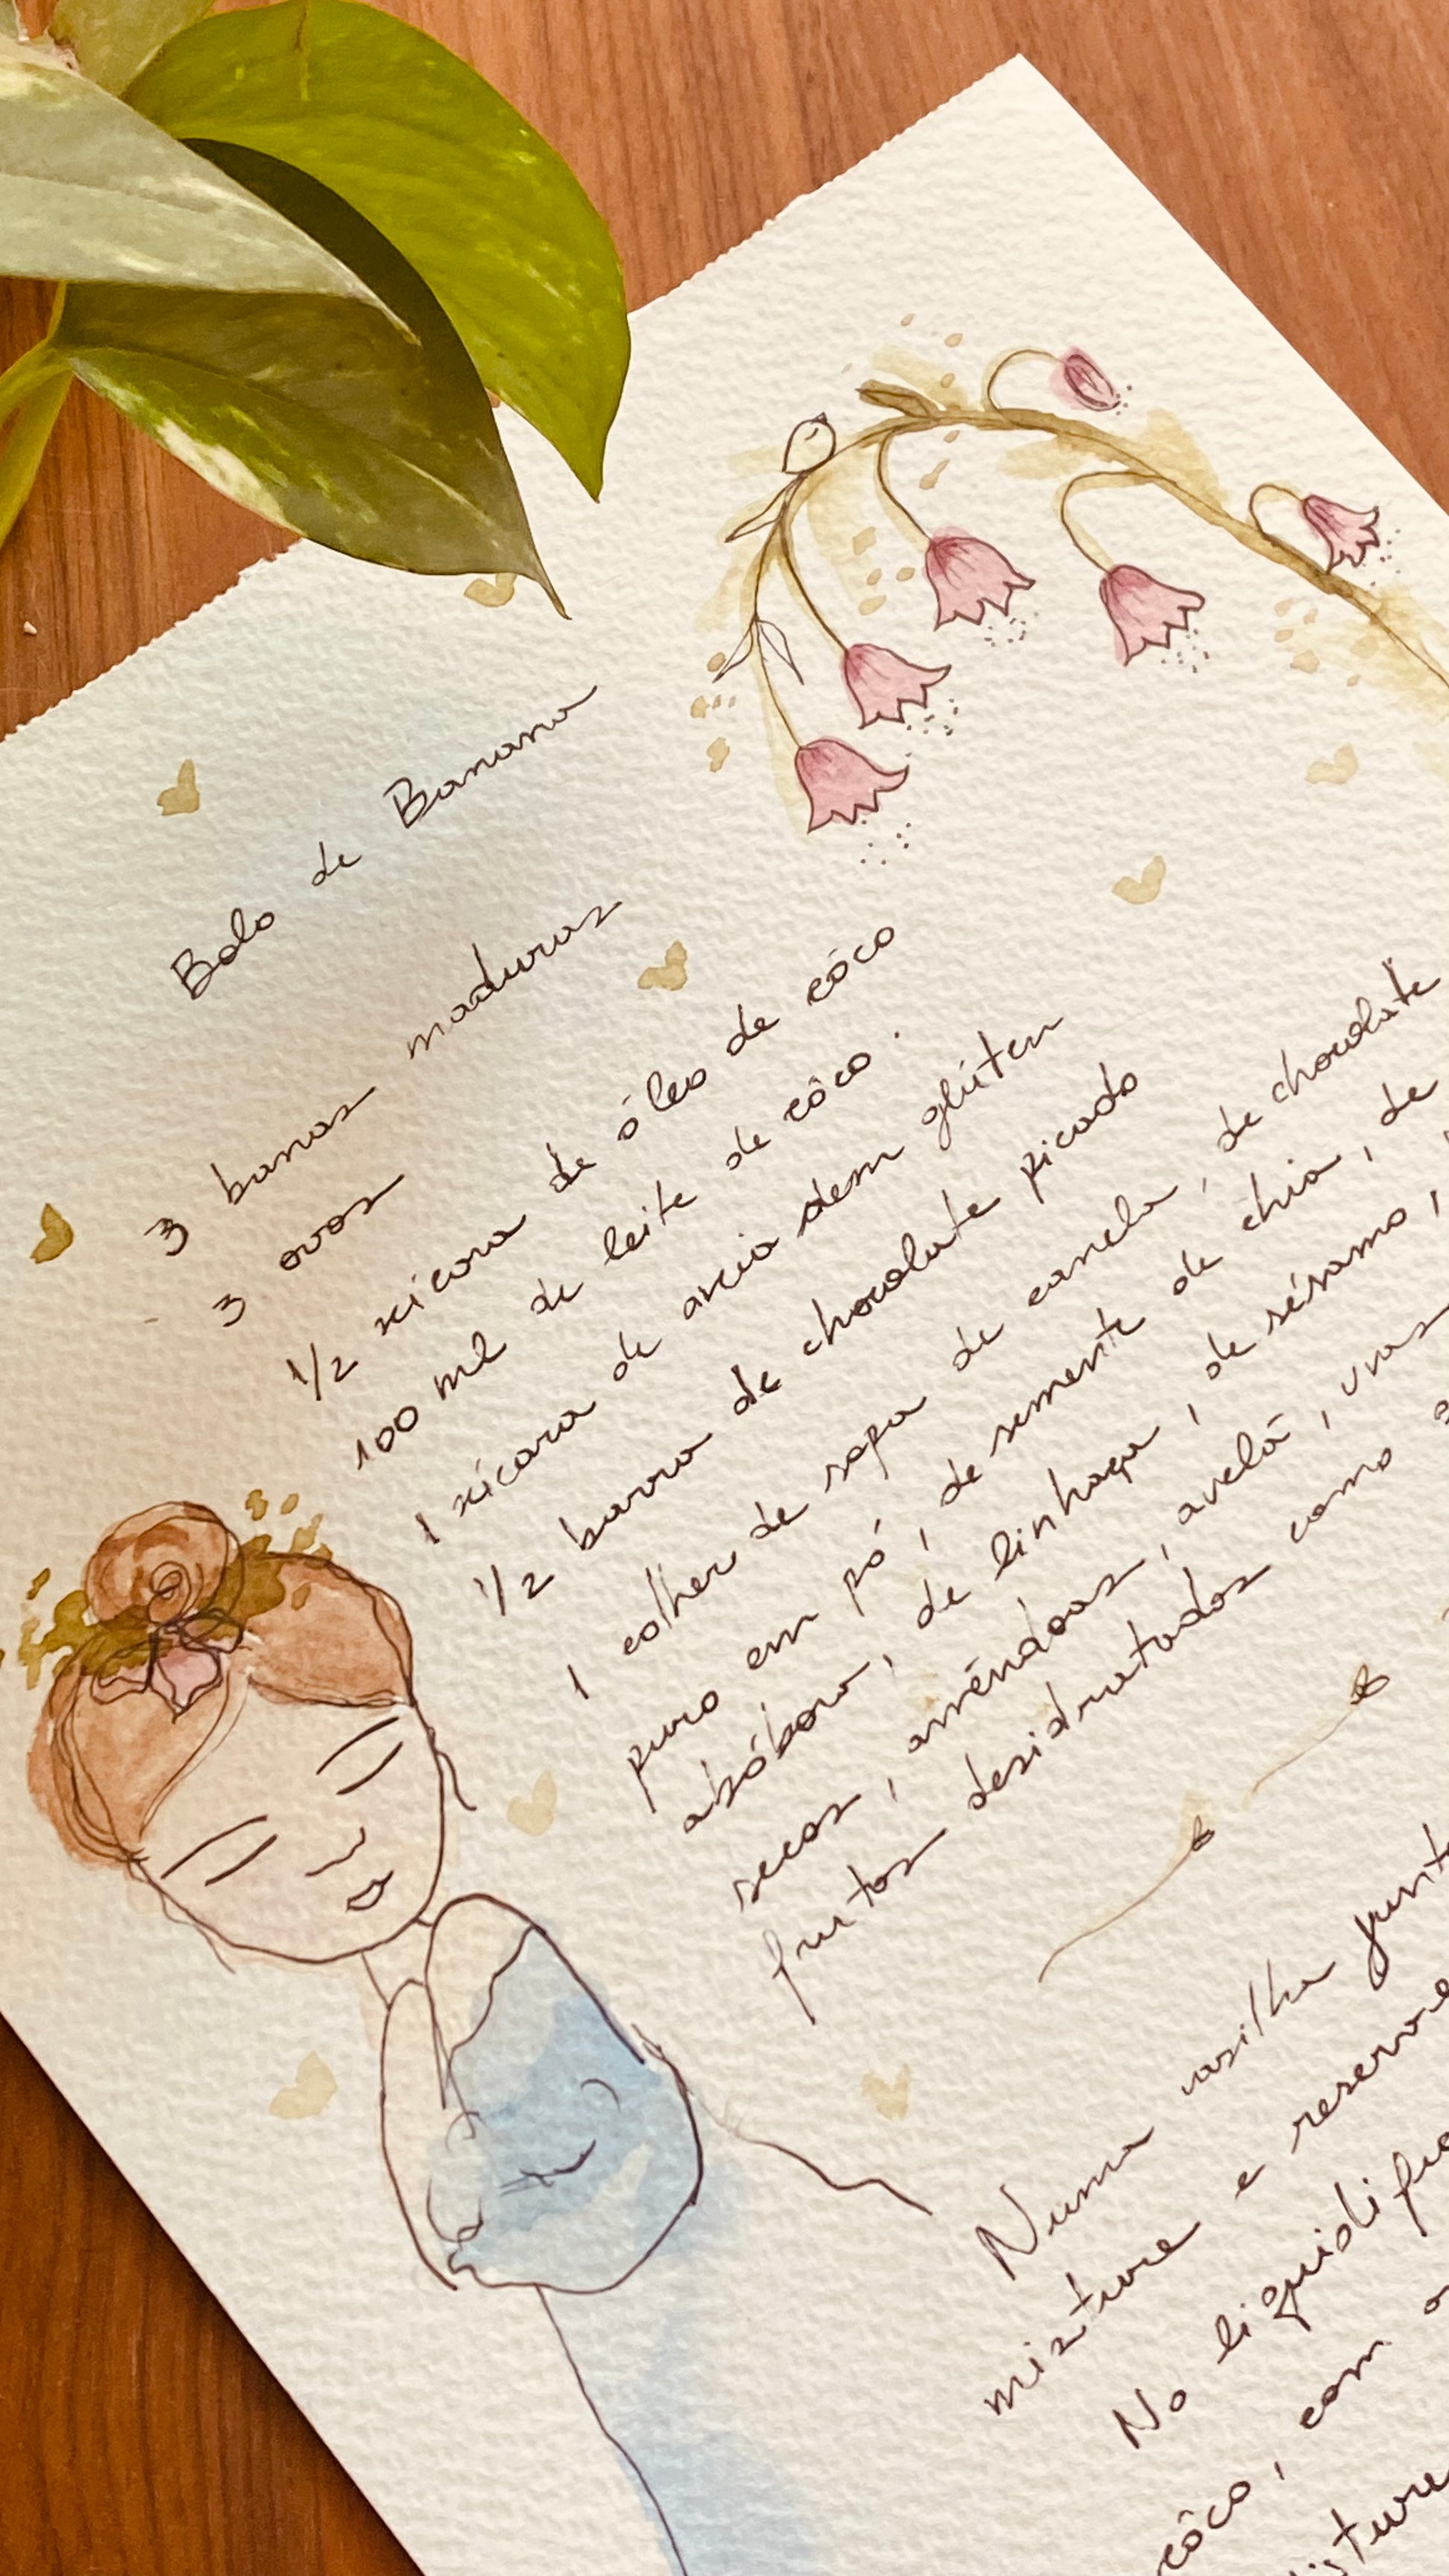 Bolo de Banana
3 banas maduras
3 ovos
1/2 xícara de óleo de côco
100 ml de leite de côco.
1 xícara de aveia sem glúten
1/2 barra de chocolate picado
1 colher de sopa de canela, de chocolate
puro em pó, de semente de chia, de
abóbora, de linhaça, de sésamo,
secos, amêndoas, avelã, uvas
frutos desidratados como
Numa vasilha junt
misture e reserve
No liquidifi
côco, com